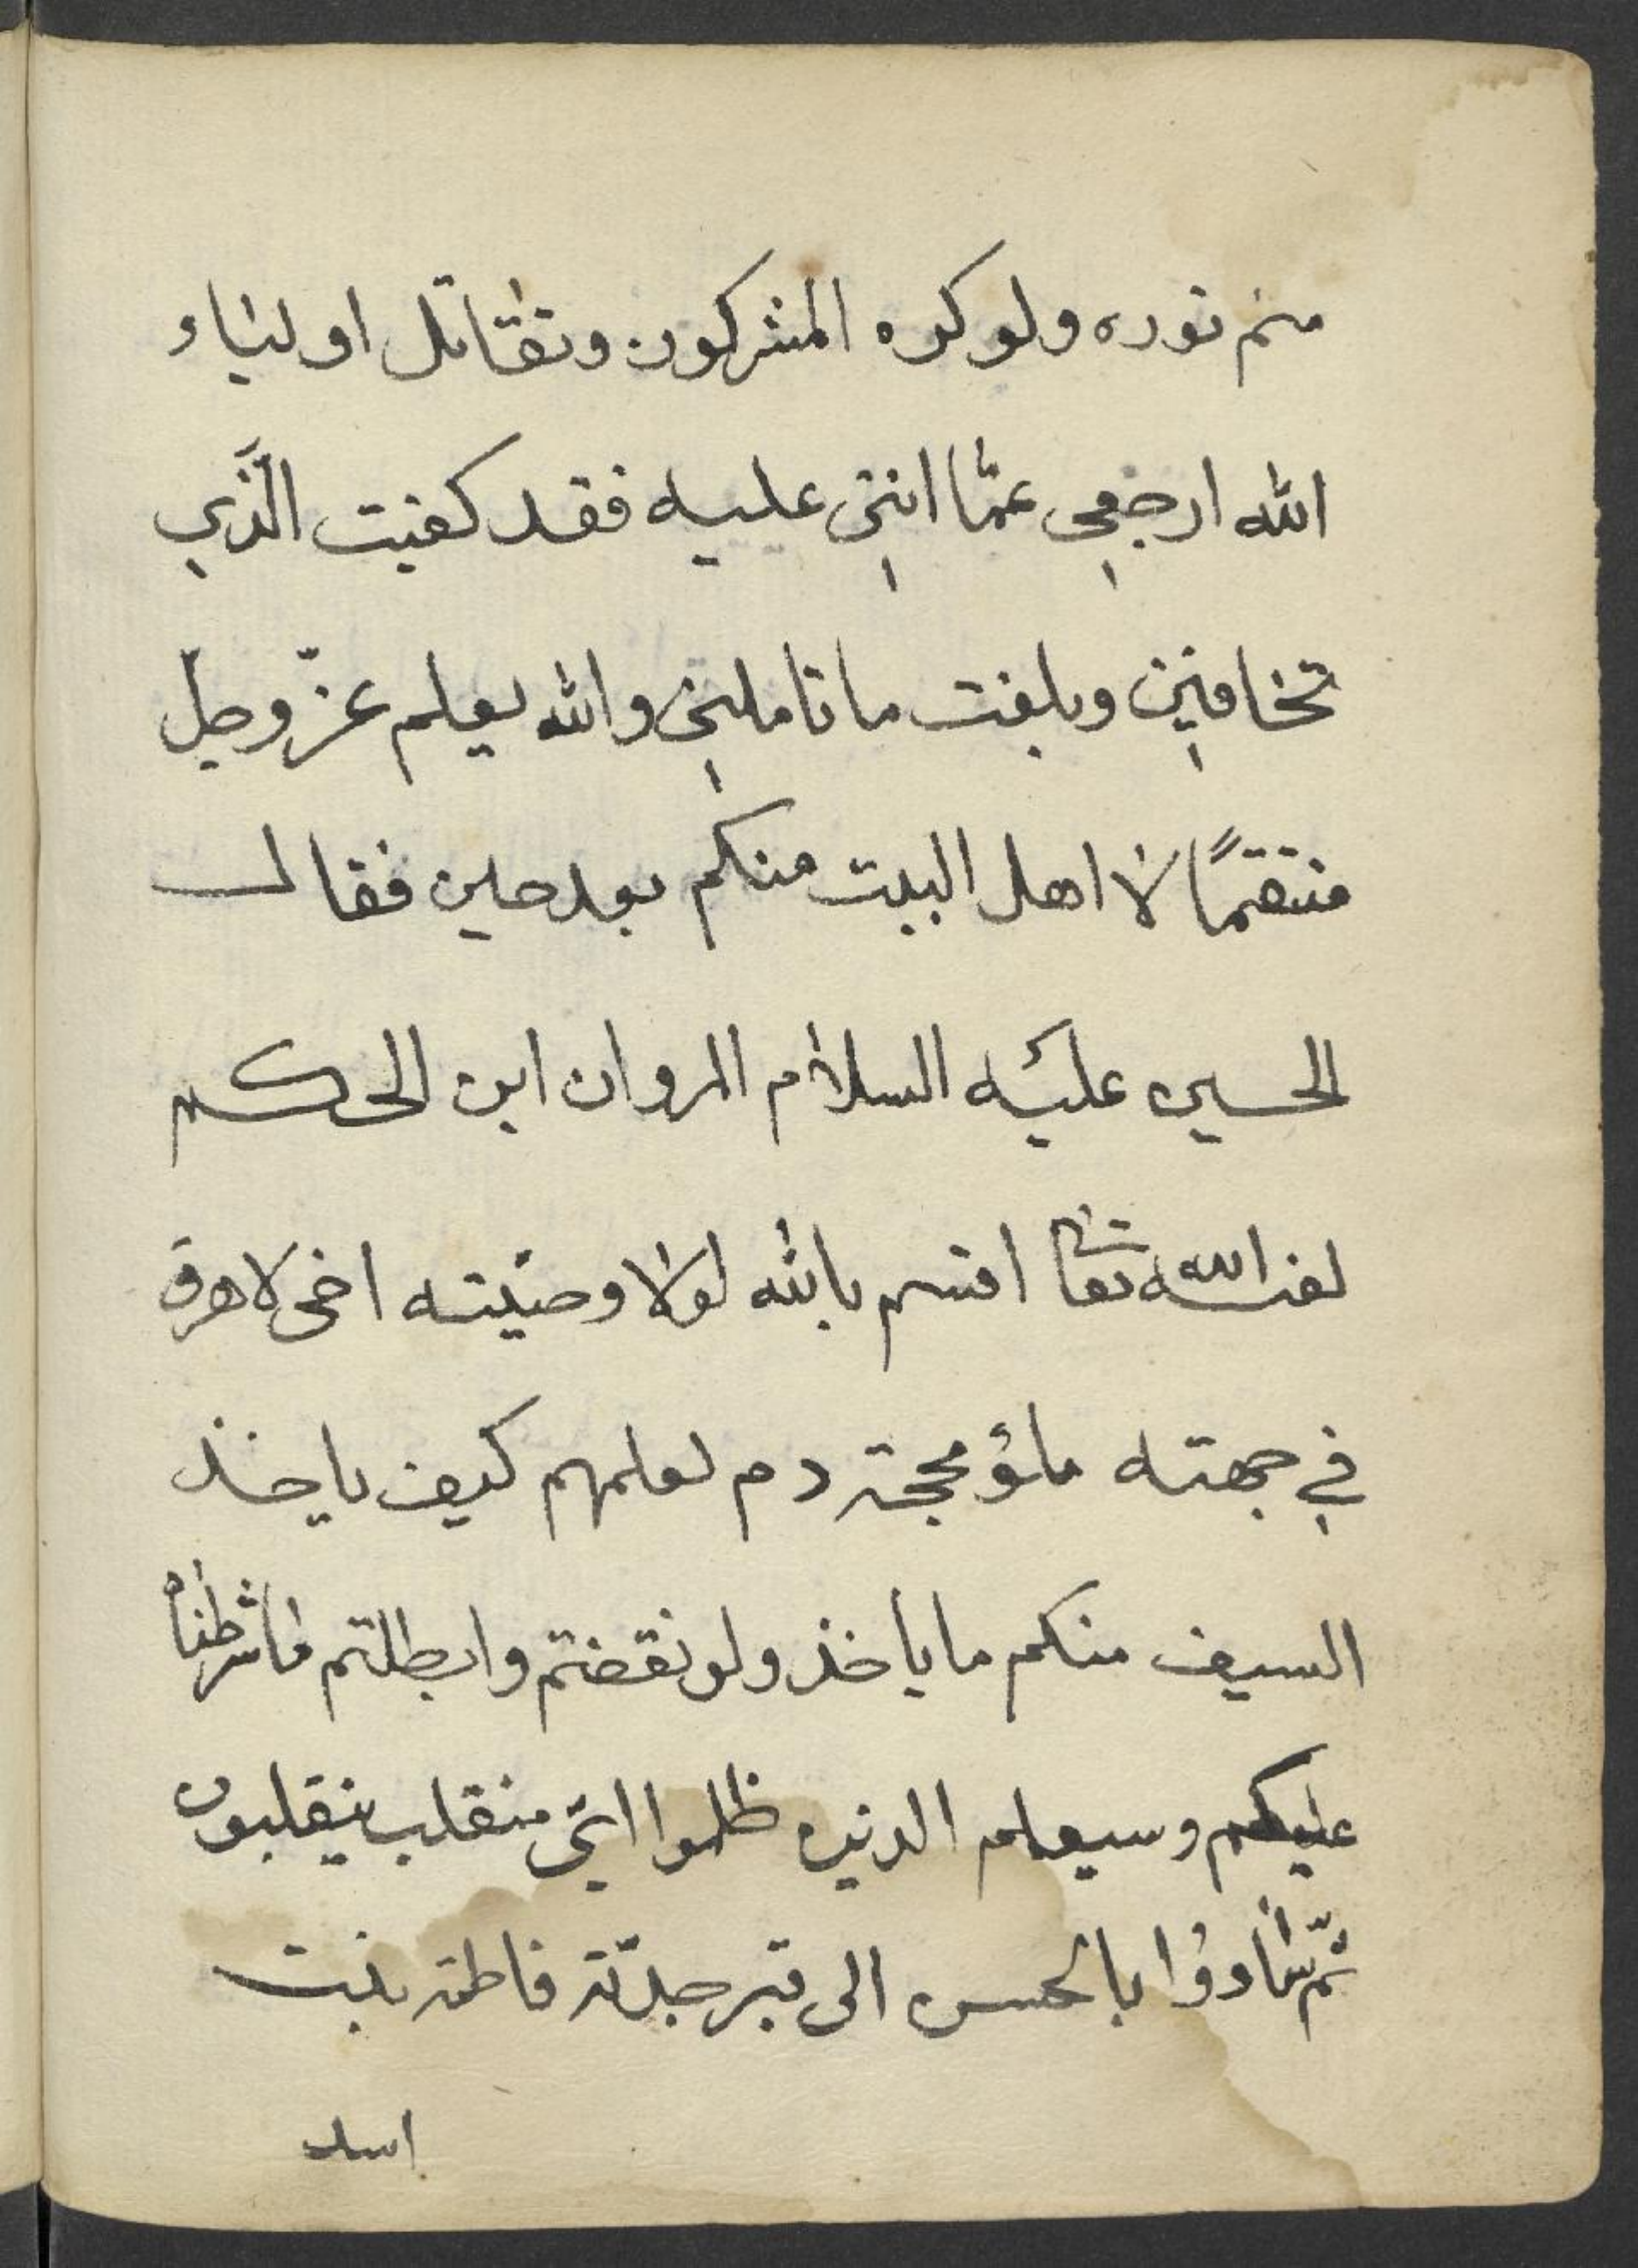 متم نوره ولو كره المشركون وتقاتل اولياء
الله ارجعي عمّا انتي عليه فقد كفيت الَّذي
تخافين وبلغت ما تاملين والله يعلم عزّ وجل
منتقمًا لا اهل البيت منكم بعد حين فقال
الحسين عليه السلام المروان ابن الحكم
لعنه الله تعا اقسم بالله لولا وصيّته اخى لاهرق
في جهته ملؤ محجة دم لعلمهم كيف ياخذ
السيف منكم ما ياخذ ولو نقضتم وابطلتم ماشرطناه
عليكم وسيعلم الدين ظلموا ايّ منقلب ينقلبون
ثمّ شادوا بالحسن الى قبر جدّته فاطمة بنت
اسد